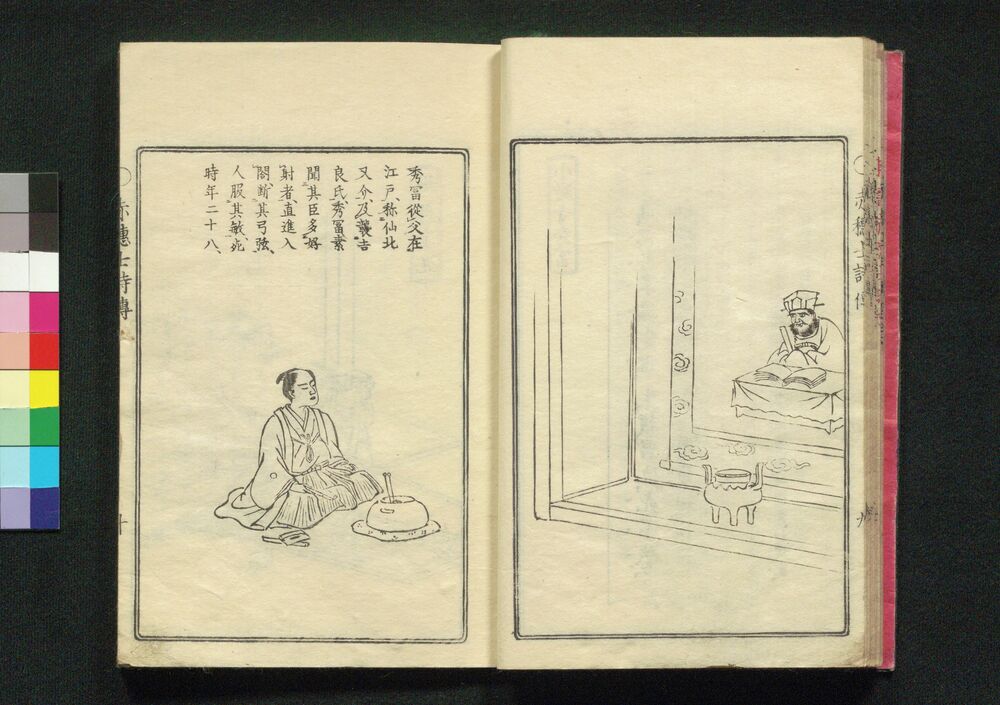 秀冨從父在
江戶、稱仙北
又介、及襲吉
良氏、秀冨素
聞其臣多好
射者、直進入
閤、斷其弓弦、
人服其敏、死
時年二十八、
赤穗士詩傳
十
赤穗士詩傳
九